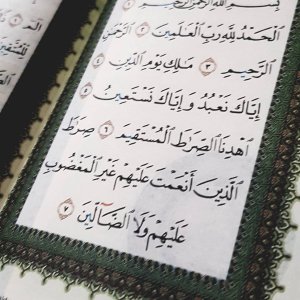 بِسْمِ اللَّهِ الرَّحْمَٰنِ الرَّحِيمِ ١
الْحَمْدُ لِلَّهِ رَبِّ الْعَالَمِينَ ٢ الرَّحْمَٰنِ
الرَّحِيمِ ٣ مَالِكِ يَوْمِ الدِّينِ ٤
إِيَّاكَ نَعْبُدُ وَإِيَّاكَ نَسْتَعِينُ ٥
اهْدِنَا الصِّرَاطَ الْمُسْتَقِيمَ ٦ صِرَاطَ
الَّذِينَ أَنْعَمْتَ عَلَيْهِمْ غَيْرِ الْمَغْضُوبِ
عَلَيْهِمْ وَلَا الضَّالِّينَ ٧
الم ١